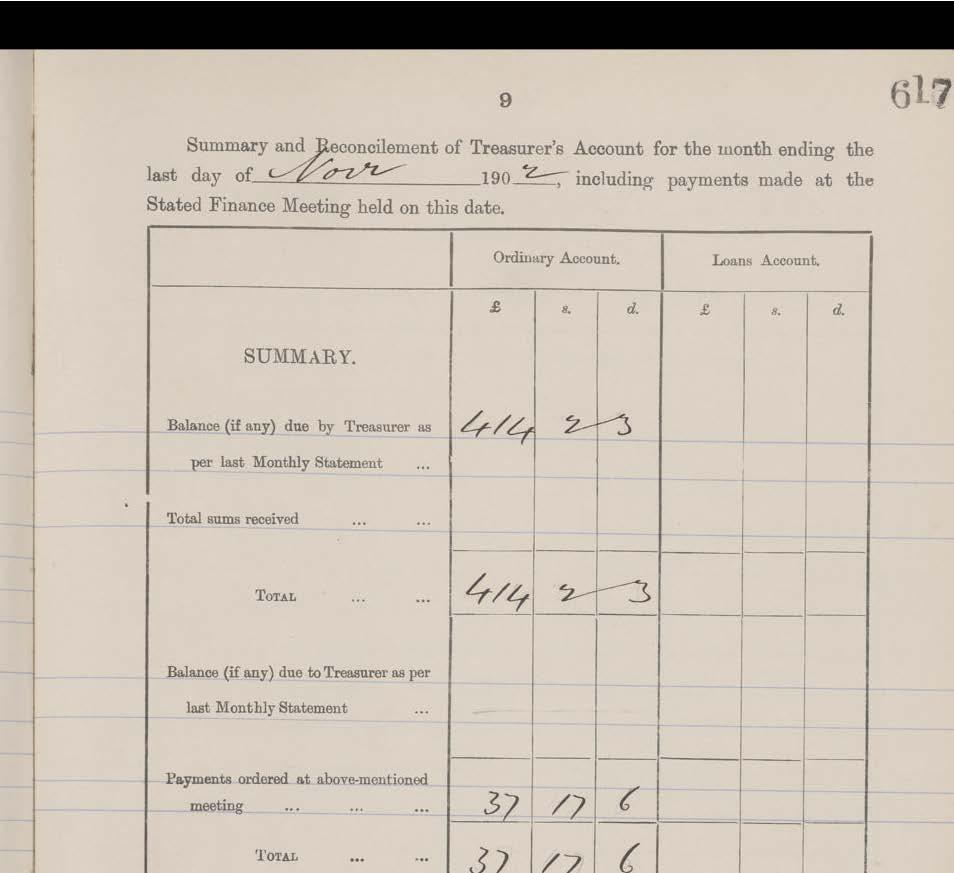 617
9
Summary and Reconcilement of Treasurer's Account for the month ending the
last day of Novr 1902, including payments made at the
Stated Finance Meeting held on this date.
Ordinary Account. Loans Account.
£ s. d. £ s. d.
SUMMARY.
Balance (if any) due by Treasurer as 414 2 3
per last Monthly Statement ...
Total sums received ... ...
TOTAL ... ... 414 2 3
Balance (if any) due to Treasurer as per
last Monthly Statement ...
Payments ordered at above-mentioned
meeting ... ... ... 37 17 6
TOTAL ... ... 37 17 6